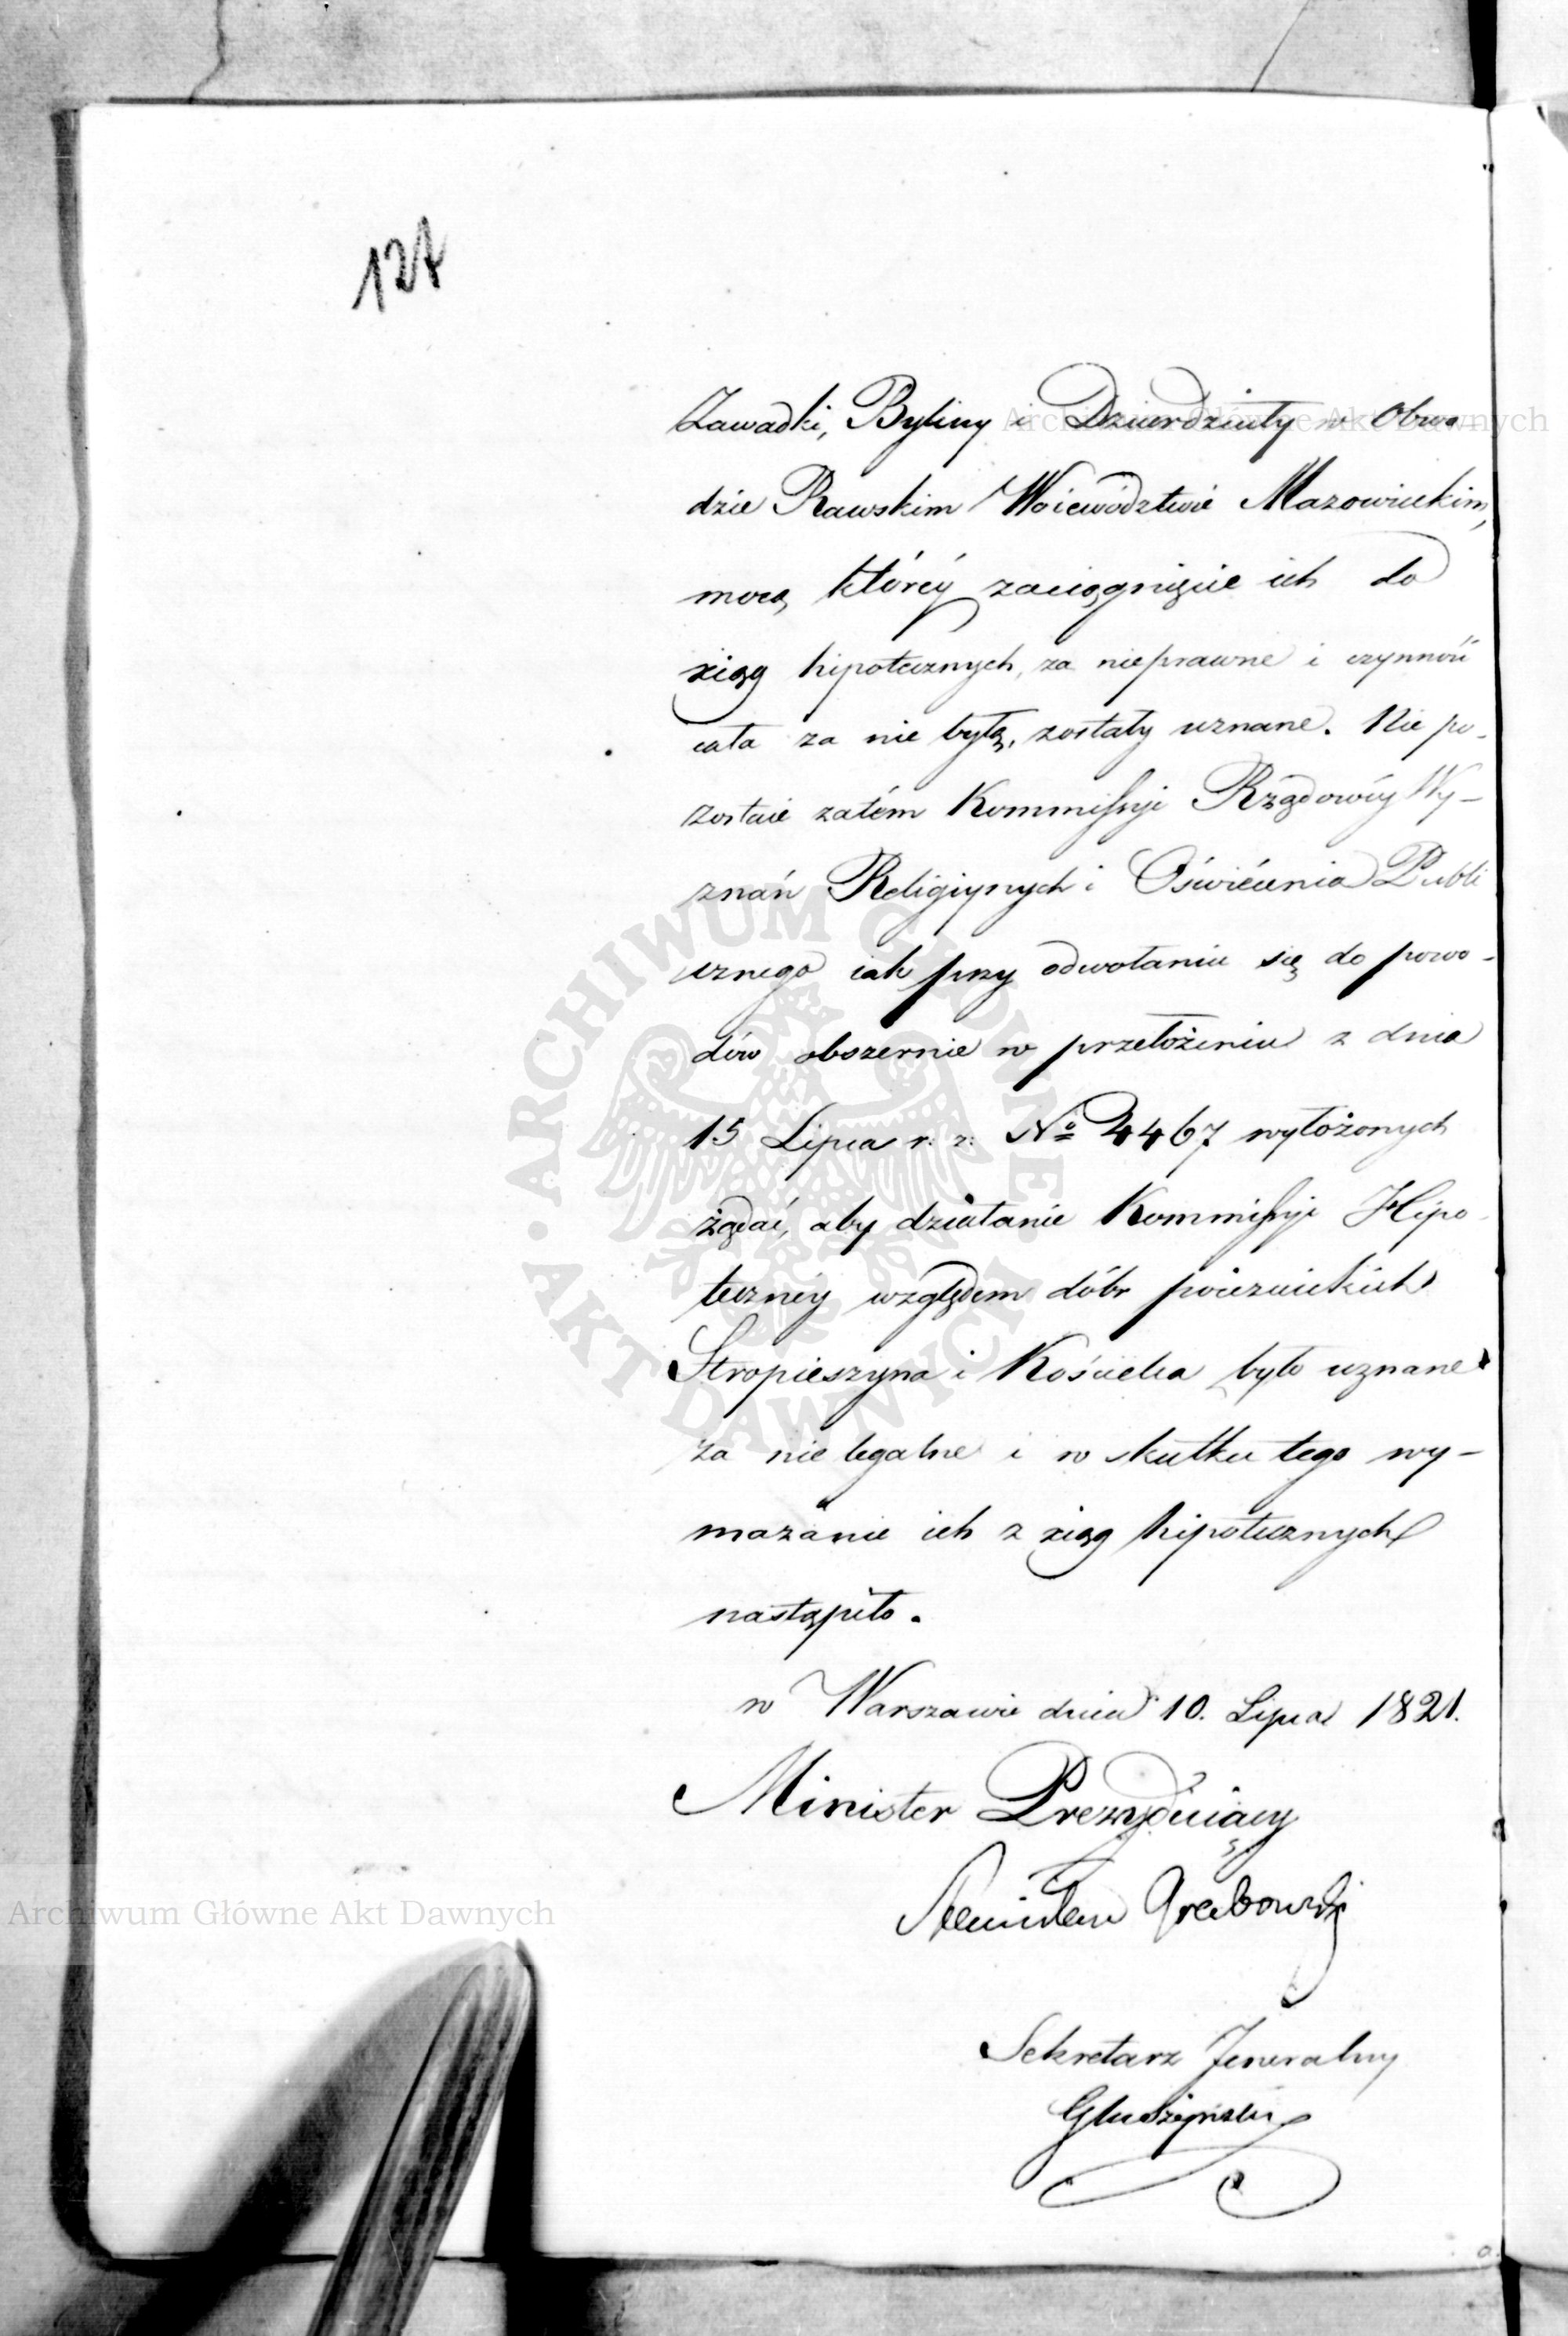 127
Zawadki, Byliny i Dzierdziuty w Obwo
dzie Rawskim Woiewództwie Mazowieckim,
mocą któréy zaciągnięcie ich do
xiąg hipotecznych, za nieprawne i czynność
cała za nie byłą, zostały uznane. Nie po-
zostaie zatém Kommissyi Rządowéy Wy-
znań Religiynych i Oświécenia Publi
cznego iak przy odwołaniu się do powo-
dów obszernie w przełożeniu z dnia
15 Lipca r. z. No 4467 wyłożonych
żądać, aby działanie Kommissyi Hipo-
tecznéy względem dóbr poiezuickich
Stropieszyna i Kościelca było uznane
za nie legalne i w skutku tego wy-
mazanie ich z xiąg hipotecznych
nastąpiło.
w Warszawie dnia 10. Lipca 1821.
Minister Prezyduiący
Stanisław Grabowski
Sekretarz Jeneralny
Głuszyński
Archiwum Główne Akt Dawnych
Archiwum Główne Akt Dawnych
ARCHIWUM GŁÓWNE AKT DAWNYCH